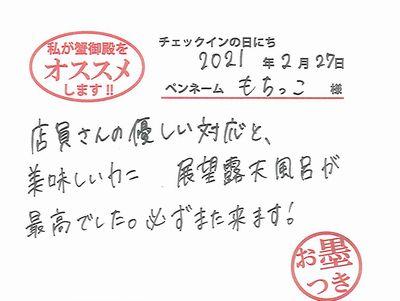 私が蟹御殿を
オススメ
します!!
チェックインの日にち
2021 年 2 月 27 日
ペンネーム もちっこ 様
店員さんの優しい対応と、
美味しいカニ 展望露天風呂が
最高でした。必ずまた来ます!
お墨
つき